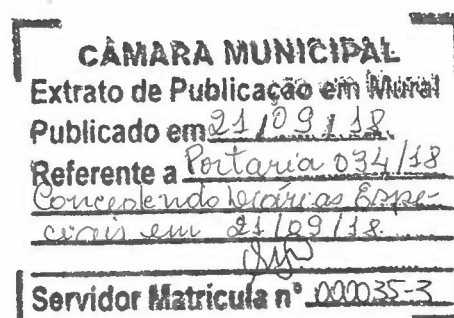 CÂMARA MUNICIPAL
Extrato de Publicação em Mural
Publicado em 21/09/18.
Referente a Portaria 034/18
Concedendo Diárias Espe-
ciais em 21/09/18.
Servidor Matricula n° 000035-3